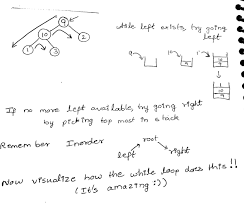 9
10
2
1
3
left exists, try going
left
9
10
1
9
10
9
10
9
If no more left available, try going right
by picking top most in a stack
Remember Inorder
root
left
right
Now visualize how the while loop does this!!
(It's amazing :))